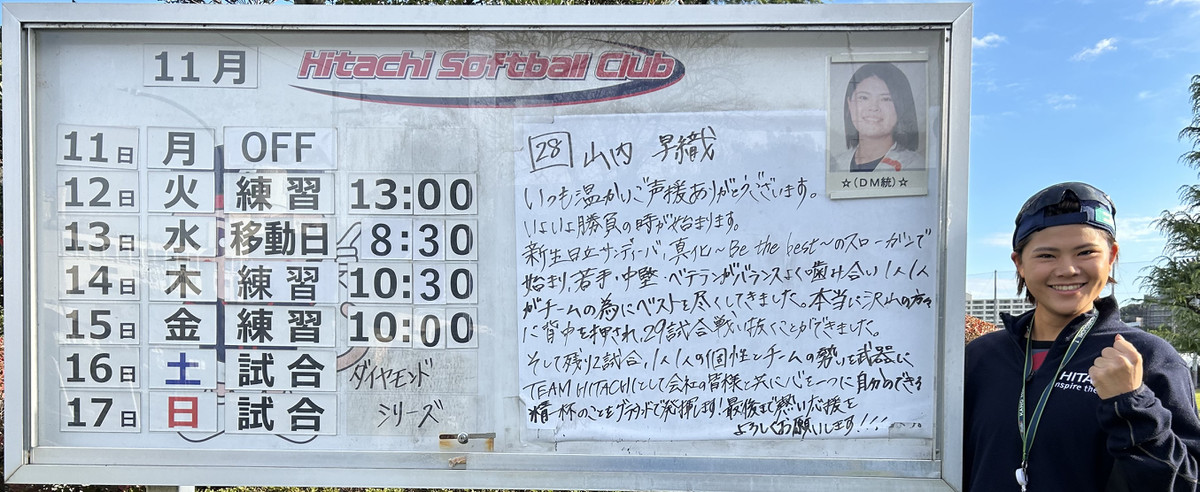 11月
Hitachi Softball Club
11日 月 OFF
12日 火 練習 13:00
13日 水 移動日 8:30
14日 木 練習 10:30
15日 金 練習 10:00
16日 土 試合 ダイヤモンド
17日 日 試合 シリーズ
28 山内 早織
いつも温かいご声援ありがとうございます。
いよいよ勝負の時が始まります。
新生日立サンディーバ、真化～Be the best～のスローガンで
始まり、若手・中堅・ベテランがバランスよく噛み合い1人1人
がチームの為にベストを尽くしてきました。本当に沢山の方々
に背中を押され、29試合戦い抜くことができました。
そして残り2試合、1人1人の個性とチームの勢いを武器に
TEAM HITACHIとして会社の皆様と共に心を一つに自分のできる
精一杯のことをグラウンドで発揮します!最後まで熱い応援を
よろしくお願いします!!!
☆(DM統)☆
HITACHI
Inspire the